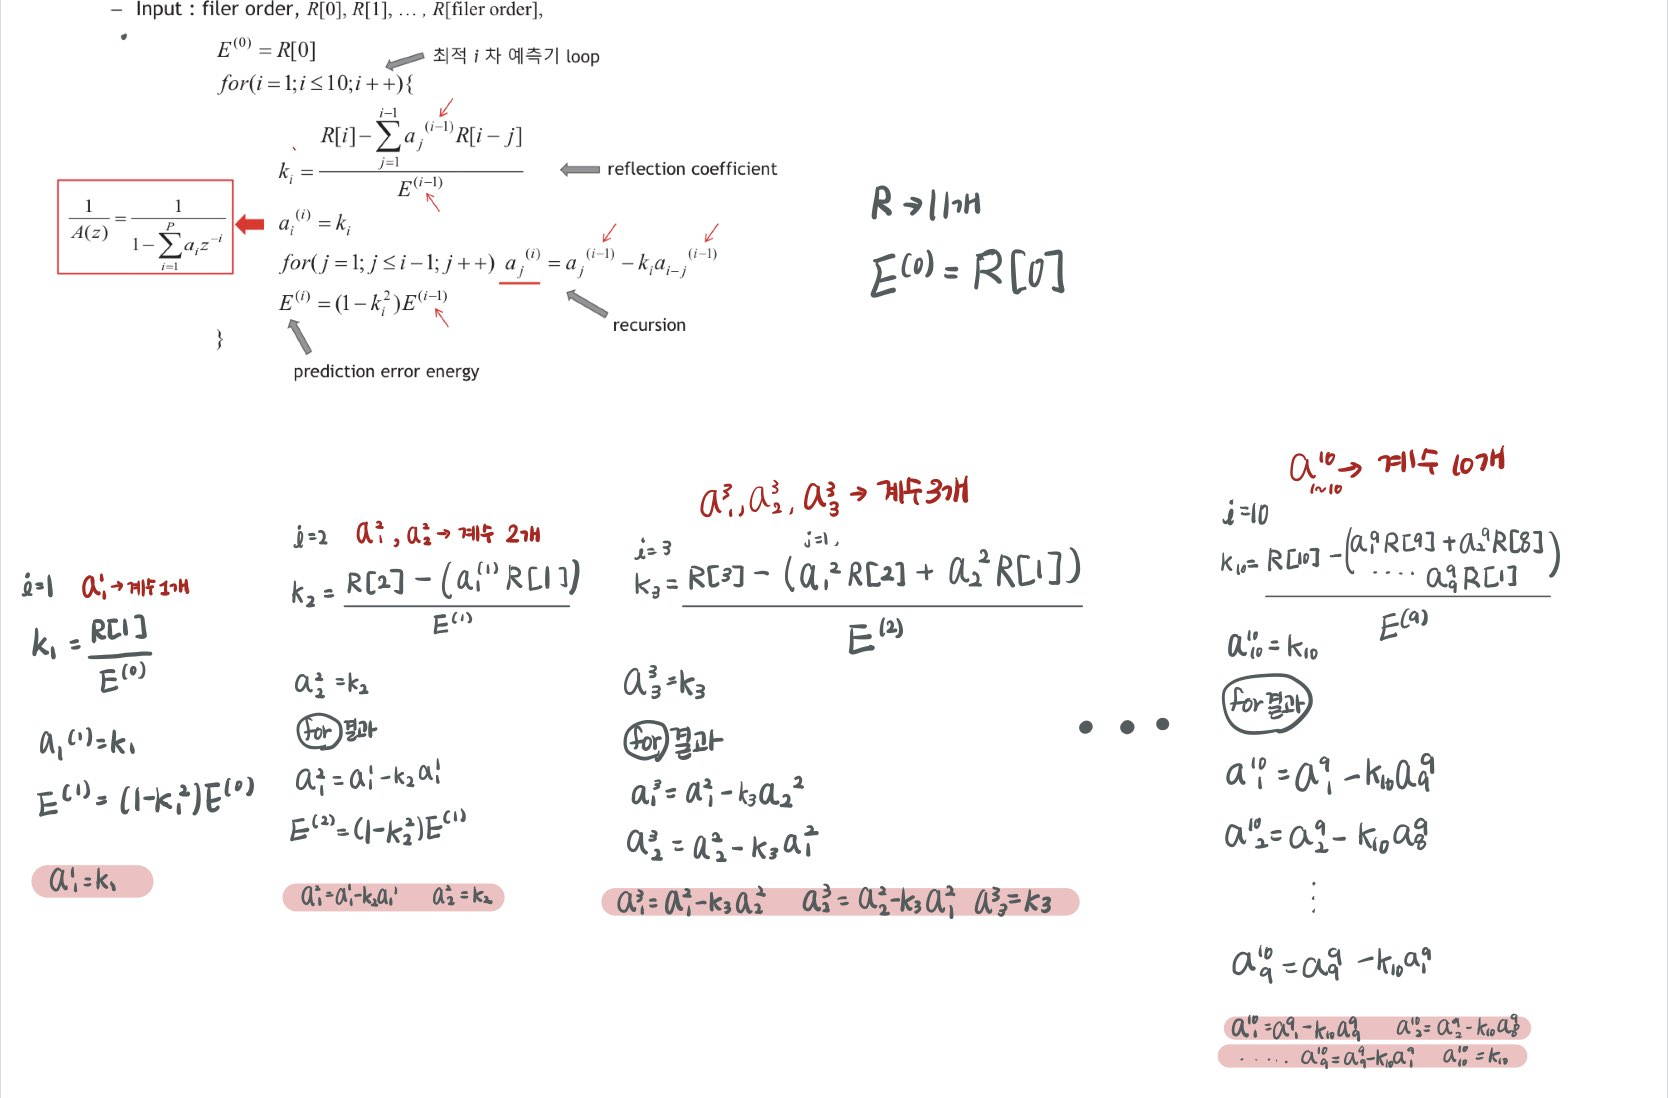 – Input : filer order, R[0], R[1], … , R[filer order],
E^{(0)} = R[0]
최적 i 차 예측기 loop
for(i = 1; i ≤ 10; i + +){
k_i = \frac{R[i] - \sum_{j=1}^{i-1} a_j^{(i-1)} R[i - j]}{E^{(i-1)}}
reflection coefficient
\frac{1}{A(z)} = \frac{1}{1 - \sum_{i=1}^{P} a_i z^{-i}}
a_i^{(i)} = k_i
for(j = 1; j ≤ i - 1; j + +) a_j^{(i)} = a_j^{(i-1)} - k_i a_{i-j}^{(i-1)}
E^{(i)} = (1 - k_i^2)E^{(i-1)}
recursion
}
prediction error energy
R → 11개
E^{(0)} = R[0]
i=1 a_1^1 → 계수 1개
k_1 = \frac{R[1]}{E^{(0)}}
a_1^{(1)} = k_1
E^{(1)} = (1-k_1^2)E^{(0)}
a_1^1 = k_1
i=2 a_1^2, a_2^2 → 계수 2개
k_2 = \frac{R[2] - (a_1^{(1)} R[1])}{E^{(1)}}
a_2^2 = k_2
for 결과
a_1^2 = a_1^1 - k_2 a_1^1
E^{(2)} = (1-k_2^2)E^{(1)}
a_1^2 = a_1^1 - k_2 a_1^1 a_2^2 = k_2
a_1^3, a_2^3, a_3^3 → 계수 3개
i=3 j=1,
k_3 = \frac{R[3] - (a_1^2 R[2] + a_2^2 R[1])}{E^{(2)}}
a_3^3 = k_3
for 결과
a_1^3 = a_1^2 - k_3 a_2^2
a_2^3 = a_2^2 - k_3 a_1^2
a_1^3 = a_1^2 - k_3 a_2^2 a_2^3 = a_2^2 - k_3 a_1^2 a_3^3 = k_3
• • •
a_{1~10}^{10} → 계수 10개
i=10
k_{10} = \frac{R[10] - (a_1^9 R[9] + a_2^9 R[8] .... a_9^9 R[1])}{E^{(9)}}
a_{10}^{10} = k_{10}
for 결과
a_1^{10} = a_1^9 - k_{10} a_9^9
a_2^{10} = a_2^9 - k_{10} a_8^9
⋮
a_9^{10} = a_9^9 - k_{10} a_1^9
a_1^{10} = a_1^9 - k_{10} a_9^9 a_2^{10} = a_2^9 - k_{10} a_8^9
..... a_9^{10} = a_9^9 - k_{10} a_1^9 a_{10}^{10} = k_{10}